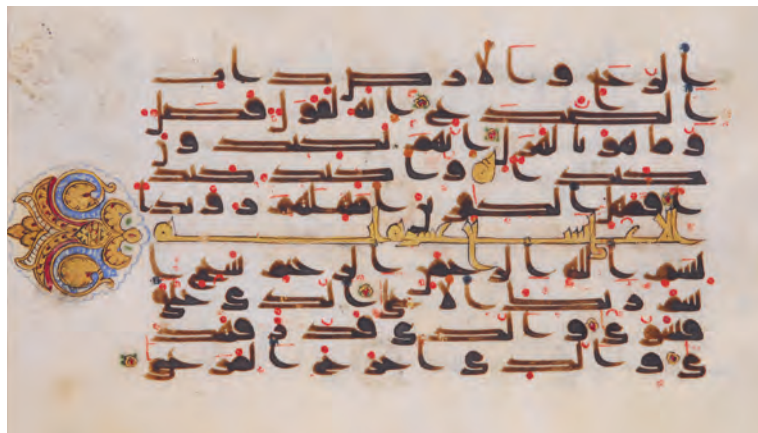 الرجع والارض ذات
الصدع انه لقول فصل
وما هو بالهزل انهم يكيدون
كيدا واكيد كيد
ا فمهل الكفرين امهلهم رويدا
الاعلى تسع عشرة اية
بسم الله الرحمن الرحيم سبح ا
سم ربك الاعلى الذي خلق
فسوى والذي قدر فهد
ى والذي اخرج المرعى